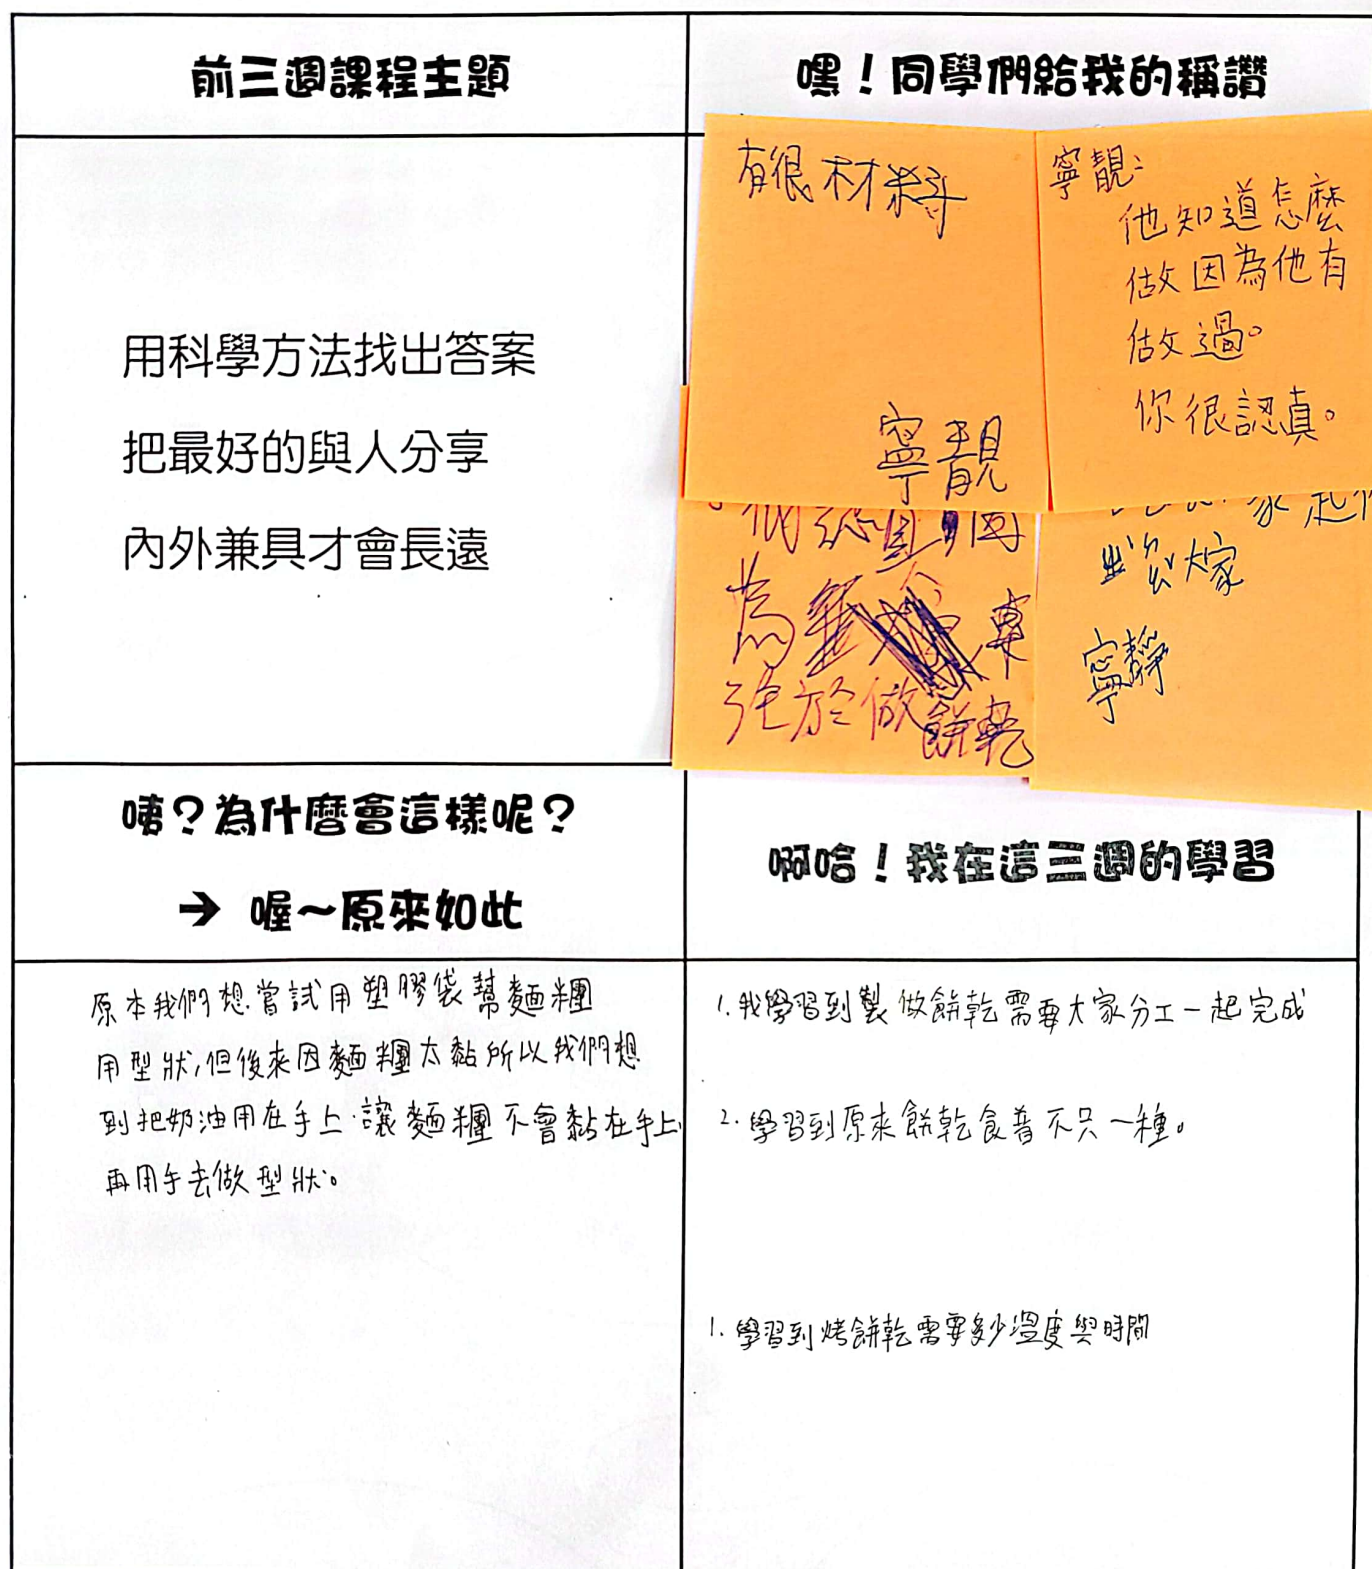 前三週課程主題
用科學方法找出答案
把最好的與人分享
內外兼具才會長遠
嘿！同學們給我的稱讚
有很材料
寧靚
寧靚:
他知道怎麼
做因為他有
做過。
你很認真。
為
於做餅乾
給大家
寧靜
咦？為什麼會這樣呢？
→ 喔～原來如此
原本我們想嘗試用塑膠袋幫麵糰
用型狀,但後來因麵糰太黏所以我們想
到把奶油用在手上,讓麵糰不會黏在手上,
再用手去做型狀。
啊哈！我在這三週的學習
1.我學習到製做餅乾需要大家分工一起完成
2.學習到原來餅乾食普不只一種。
1.學習到烤餅乾需要多少溫度與時間